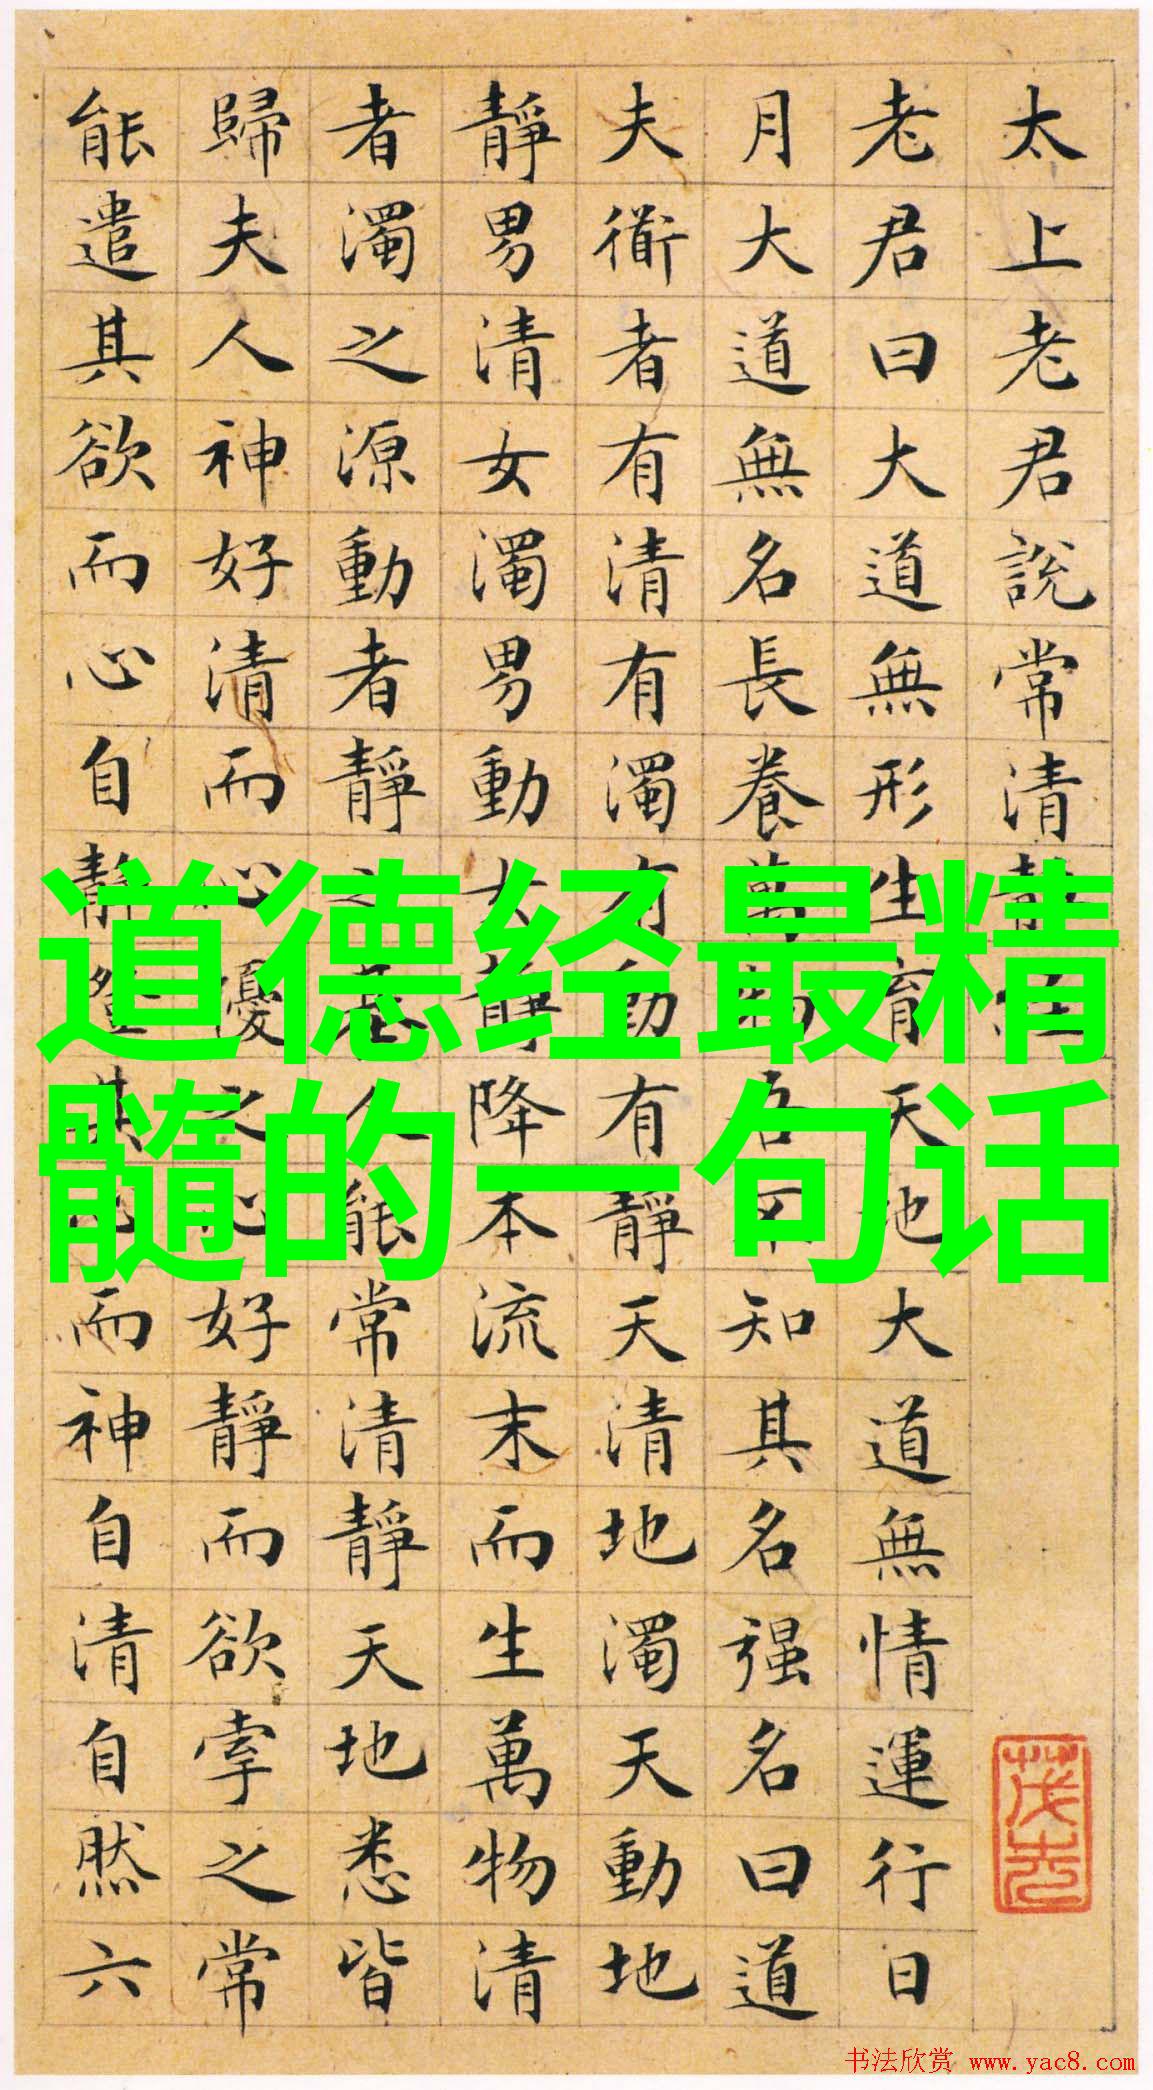 太上老君說常清靜經
老君曰大道無形生育天地大道無情運行日
月大道無名長養萬物吾不知其名强名曰道
夫衜者有清有濁有動有靜天清地濁天動地
靜男清女濁男動女靜降本流末而生萬物清
者濁之源動者靜之基人能常清靜天地悉皆
歸夫人神好清而心擾之心好靜而欲牽之常
能遣其欲而心自靜澄其心而神自清自然六
道德经最精
髓的一句话
书法欣赏 www.yac8.com